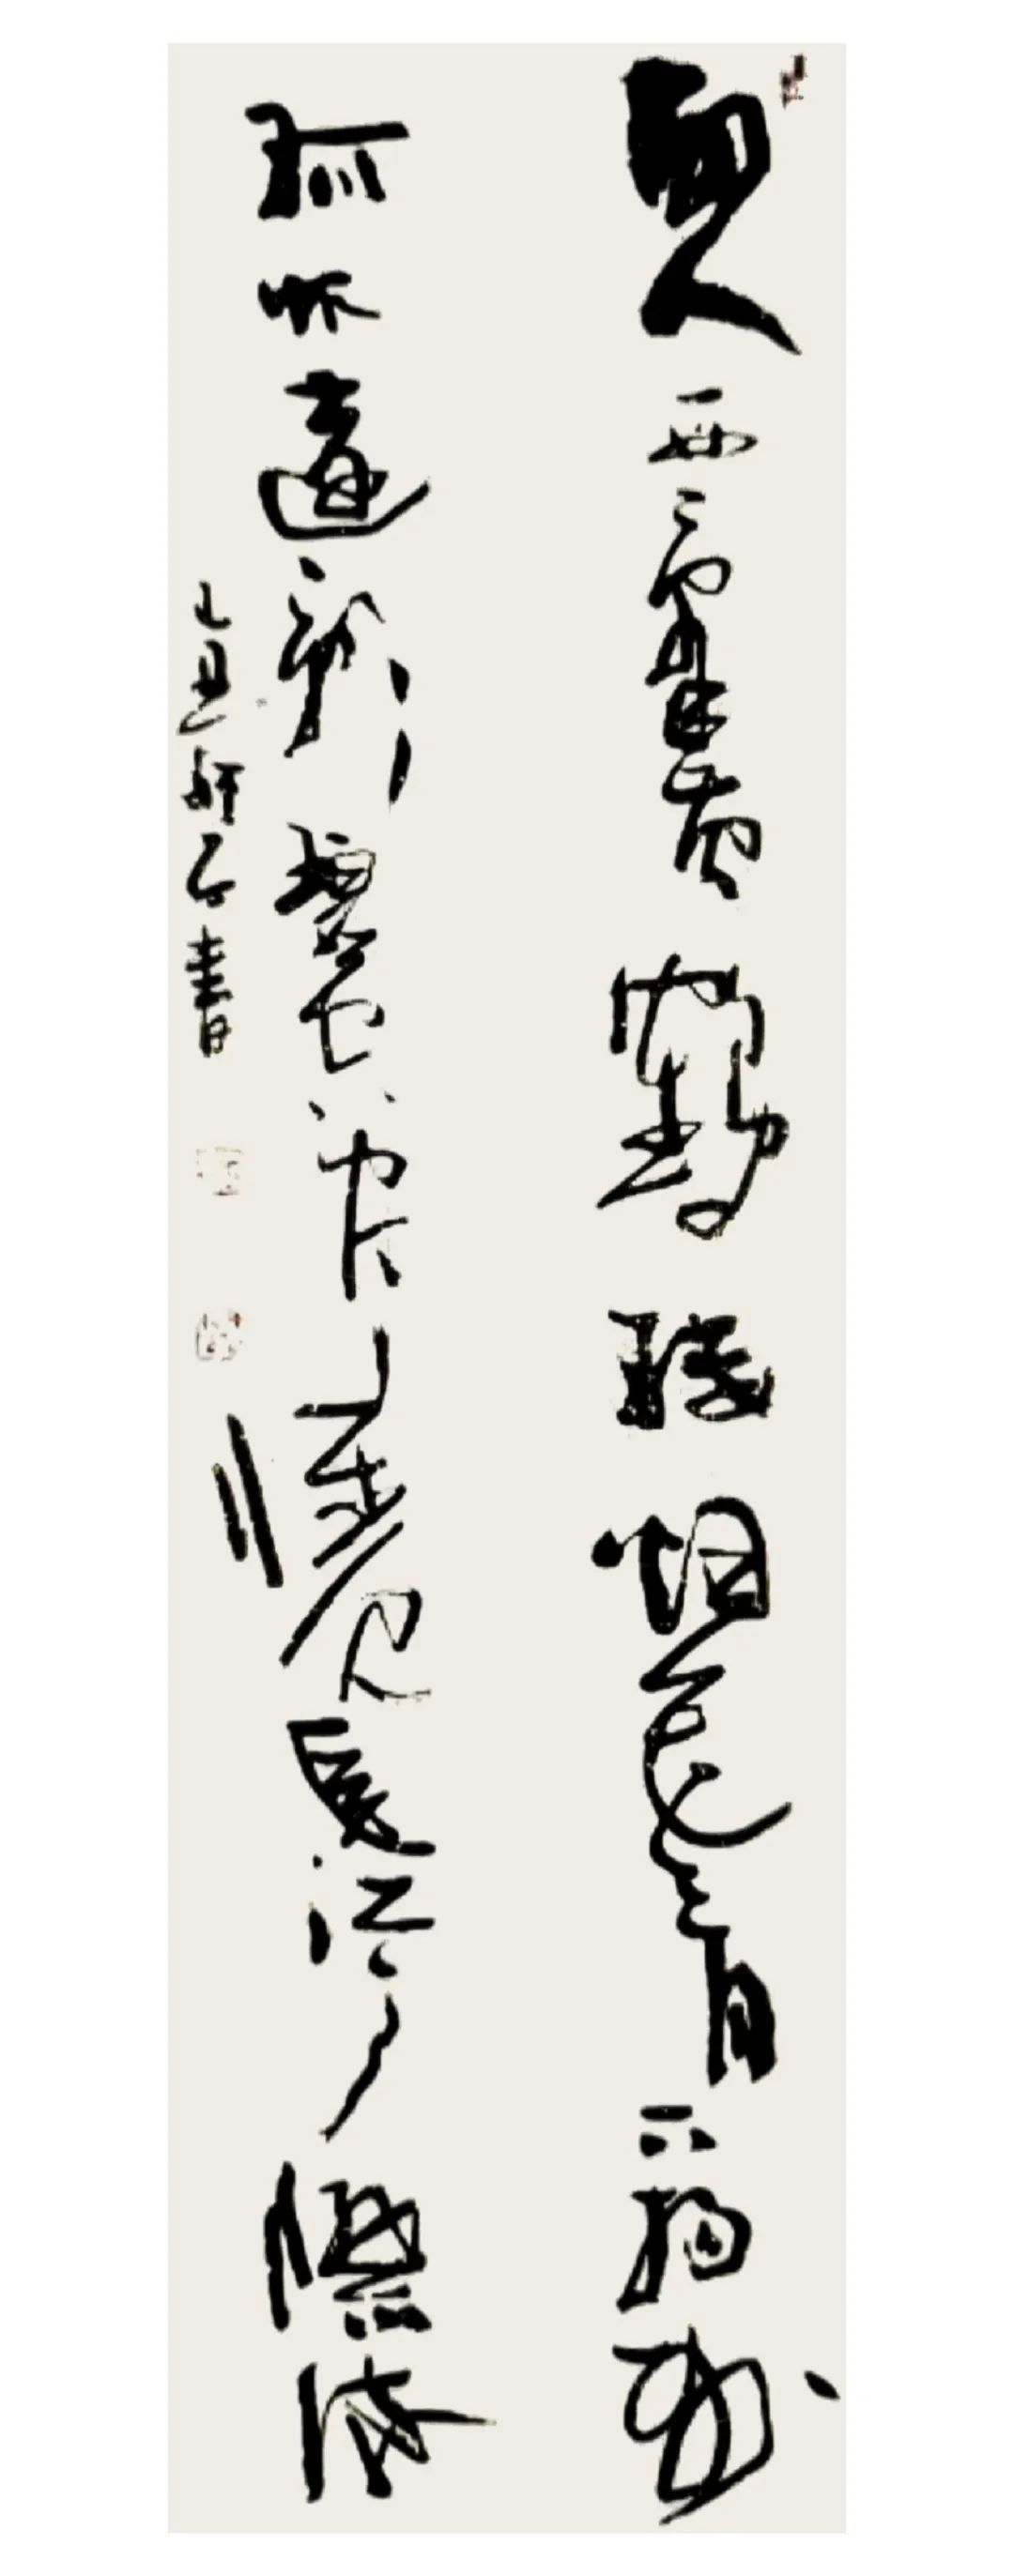 故人西辞黄鹤楼烟花三月下扬州
孤帆远影碧空尽唯见长江天际流
书